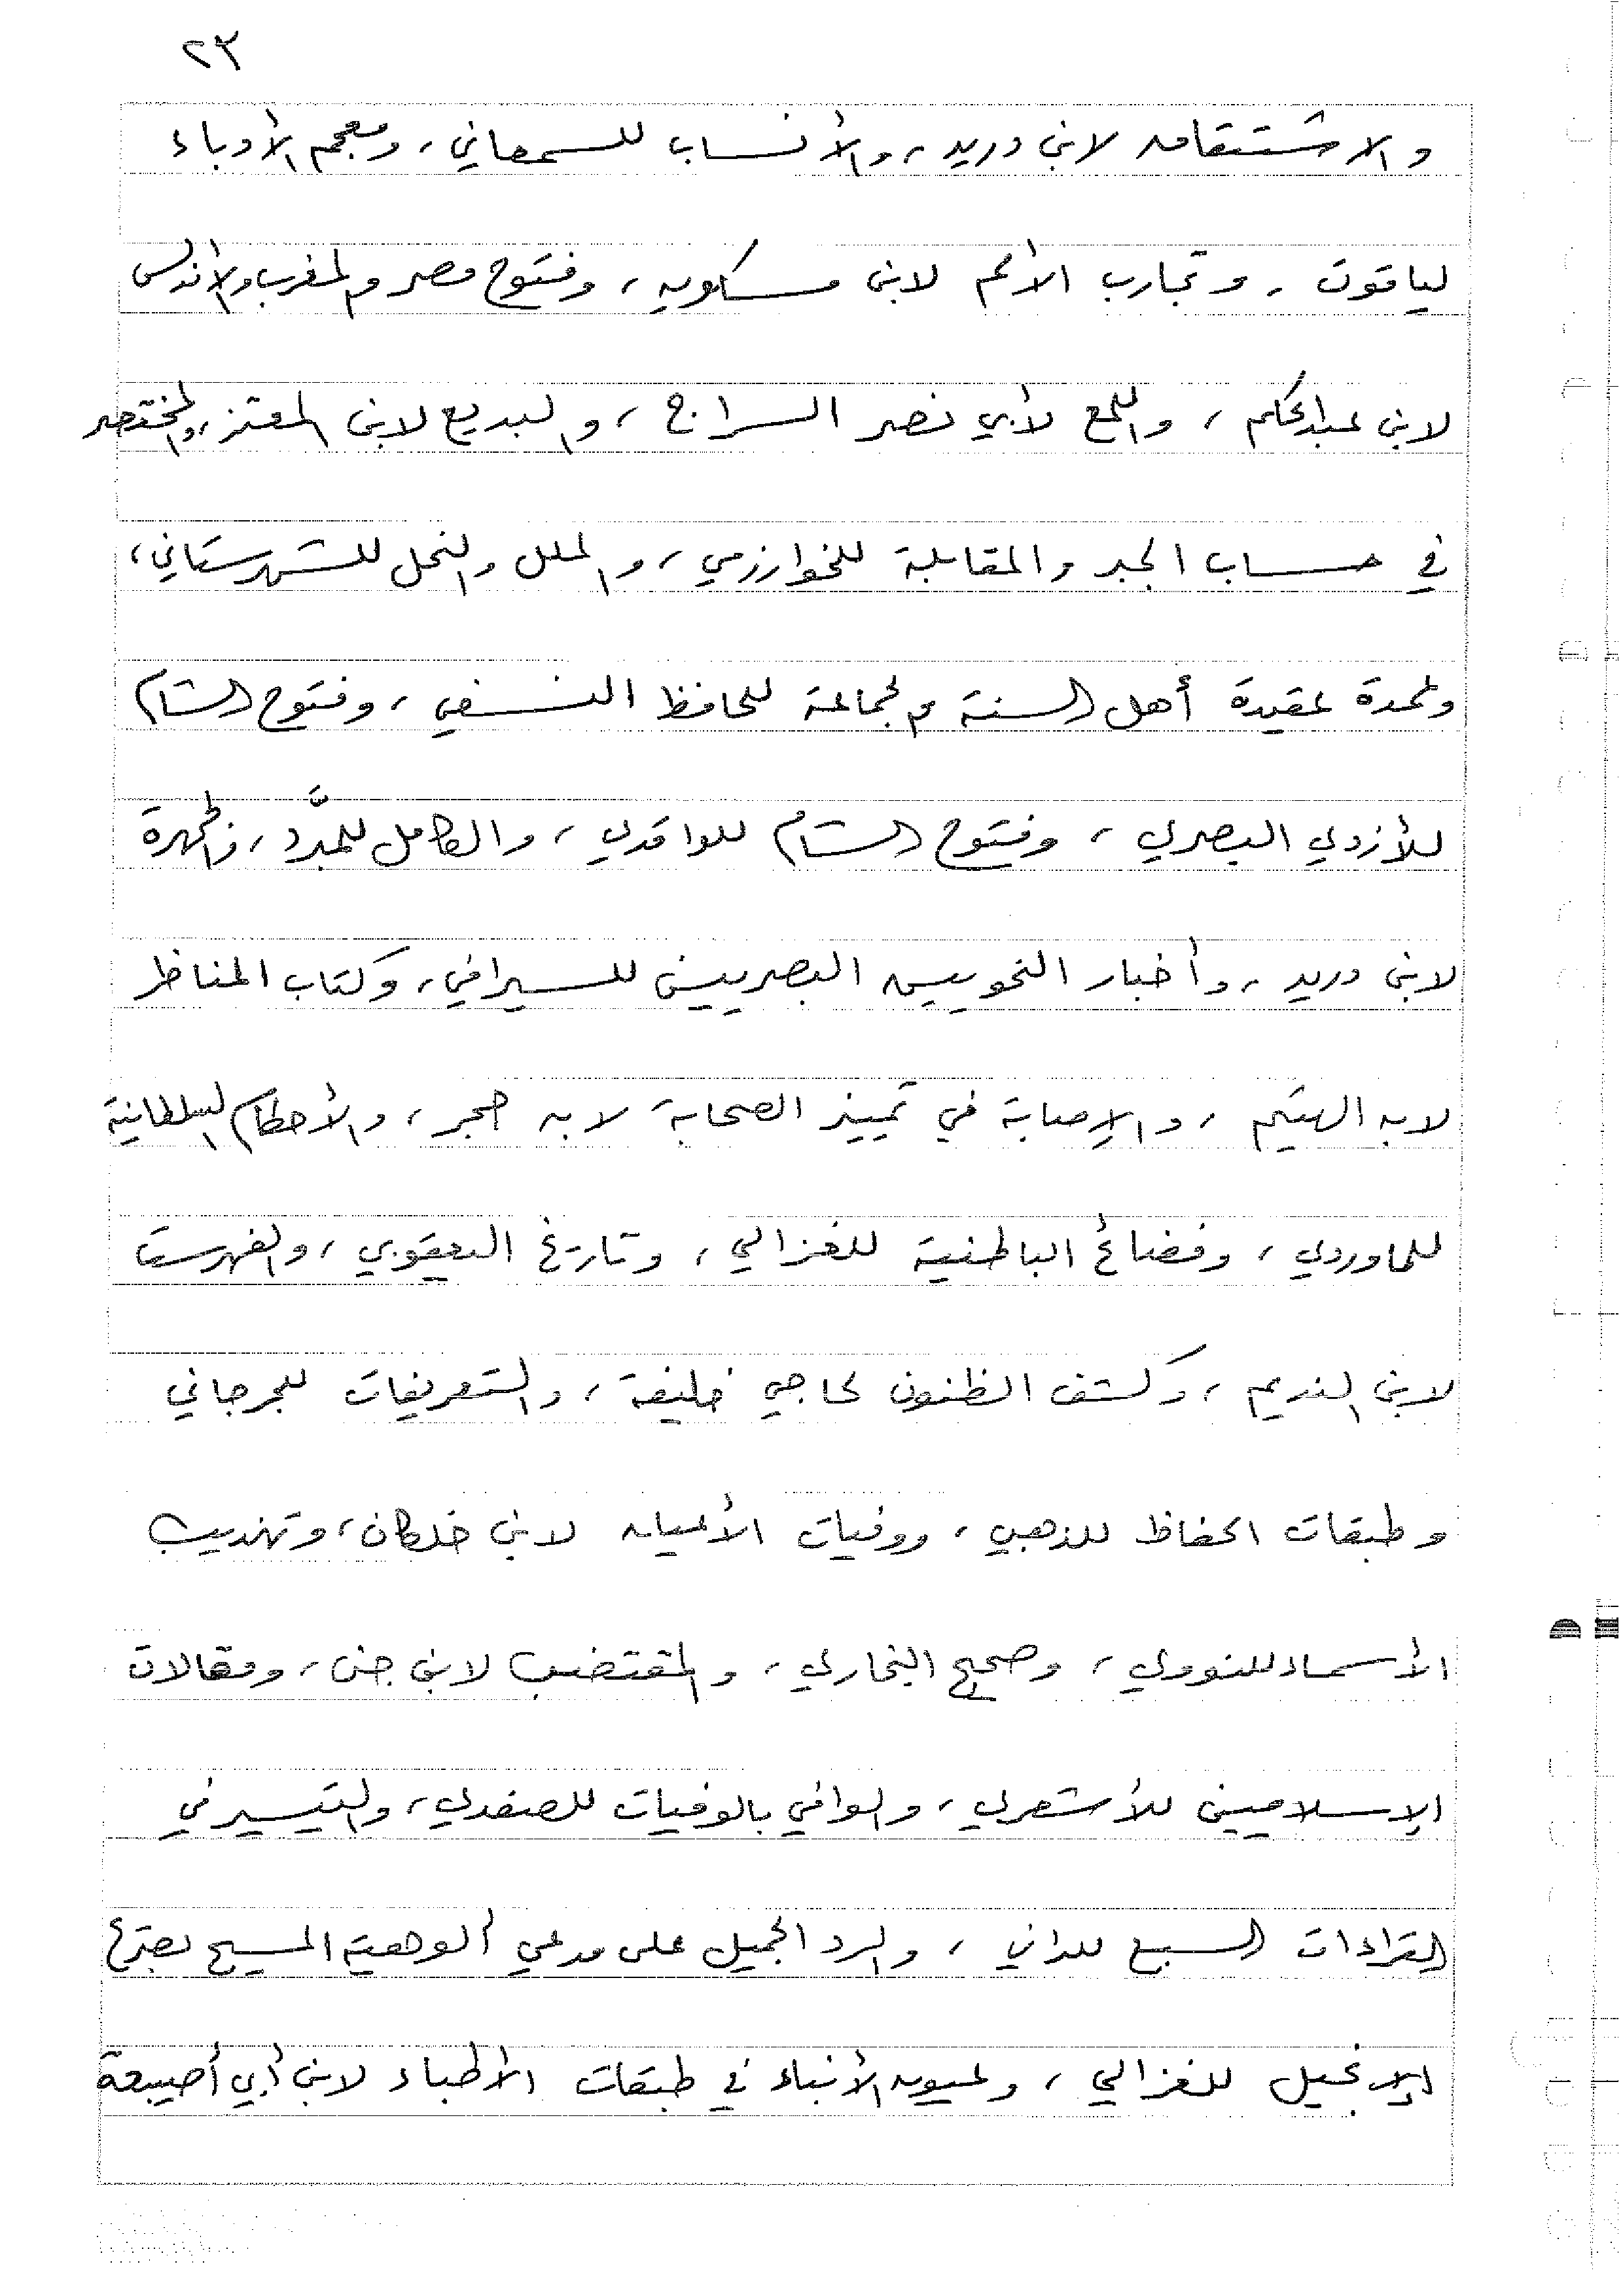 ٢٣
والاشتقاق لابن دريد، والأنساب للسمعاني، ومعجم الأدباء
لياقوت، وتجارب الأمم لابن مسكويه، وفتوح مصر والمغرب والأندلس
لابن عبدالحكم، واللمع لأبي نصر السراج، والبديع لابن المعتز، والمختصر
في حساب الجبر والمقابلة للخوارزمي، والملل والنحل للشهرستاني،
وعمدة عقيدة أهل السنة والجماعة للحافظ النسفي، وفتوح الشام
للأزدي البصري، وفتوح الشام للواقدي، والكامل للمبرَّد، والجمهرة
لابن دريد، وأخبار النحويين البصريين للسيرافي، وكتاب المناظر
لابن الهيثم، والإصابة في تمييز الصحابة لابن حجر، والأحكام السلطانية
للماوردي، وفضائح الباطنية للغزالي، وتاريخ اليعقوبي، والفهرست
لابن النديم، وكشف الظنون لحاجي خليفة، والتعريفات للجرجاني
وطبقات الحفاظ للذهبي، ووفيات الأعيان لابن خلكان، وتهذيب
الأسماء للنووي، وصحيح البخاري، والمقتضب لابن جني، ومقالات
الإسلاميين للأشعري، والوافي بالوفيات للصفدي، والتيسير في
القراءات السبع للداني، والرد الجميل على مدعي ألوهية المسيح بصريح
الإنجيل للغزالي، وعيون الأنباء في طبقات الأطباء لابن أبي أصيبعة